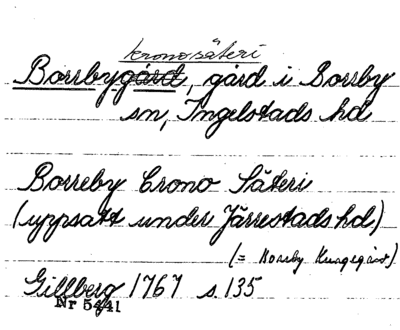 kronosäteri
Borrbygård, gård i Borrby
sn, Ingelstads hd
Borreby Crono Säteri
(uppsatt under Järrestads hd)
(= Borrby Kungsgård)
Gillberg 1767 s. 135
Nr 5441